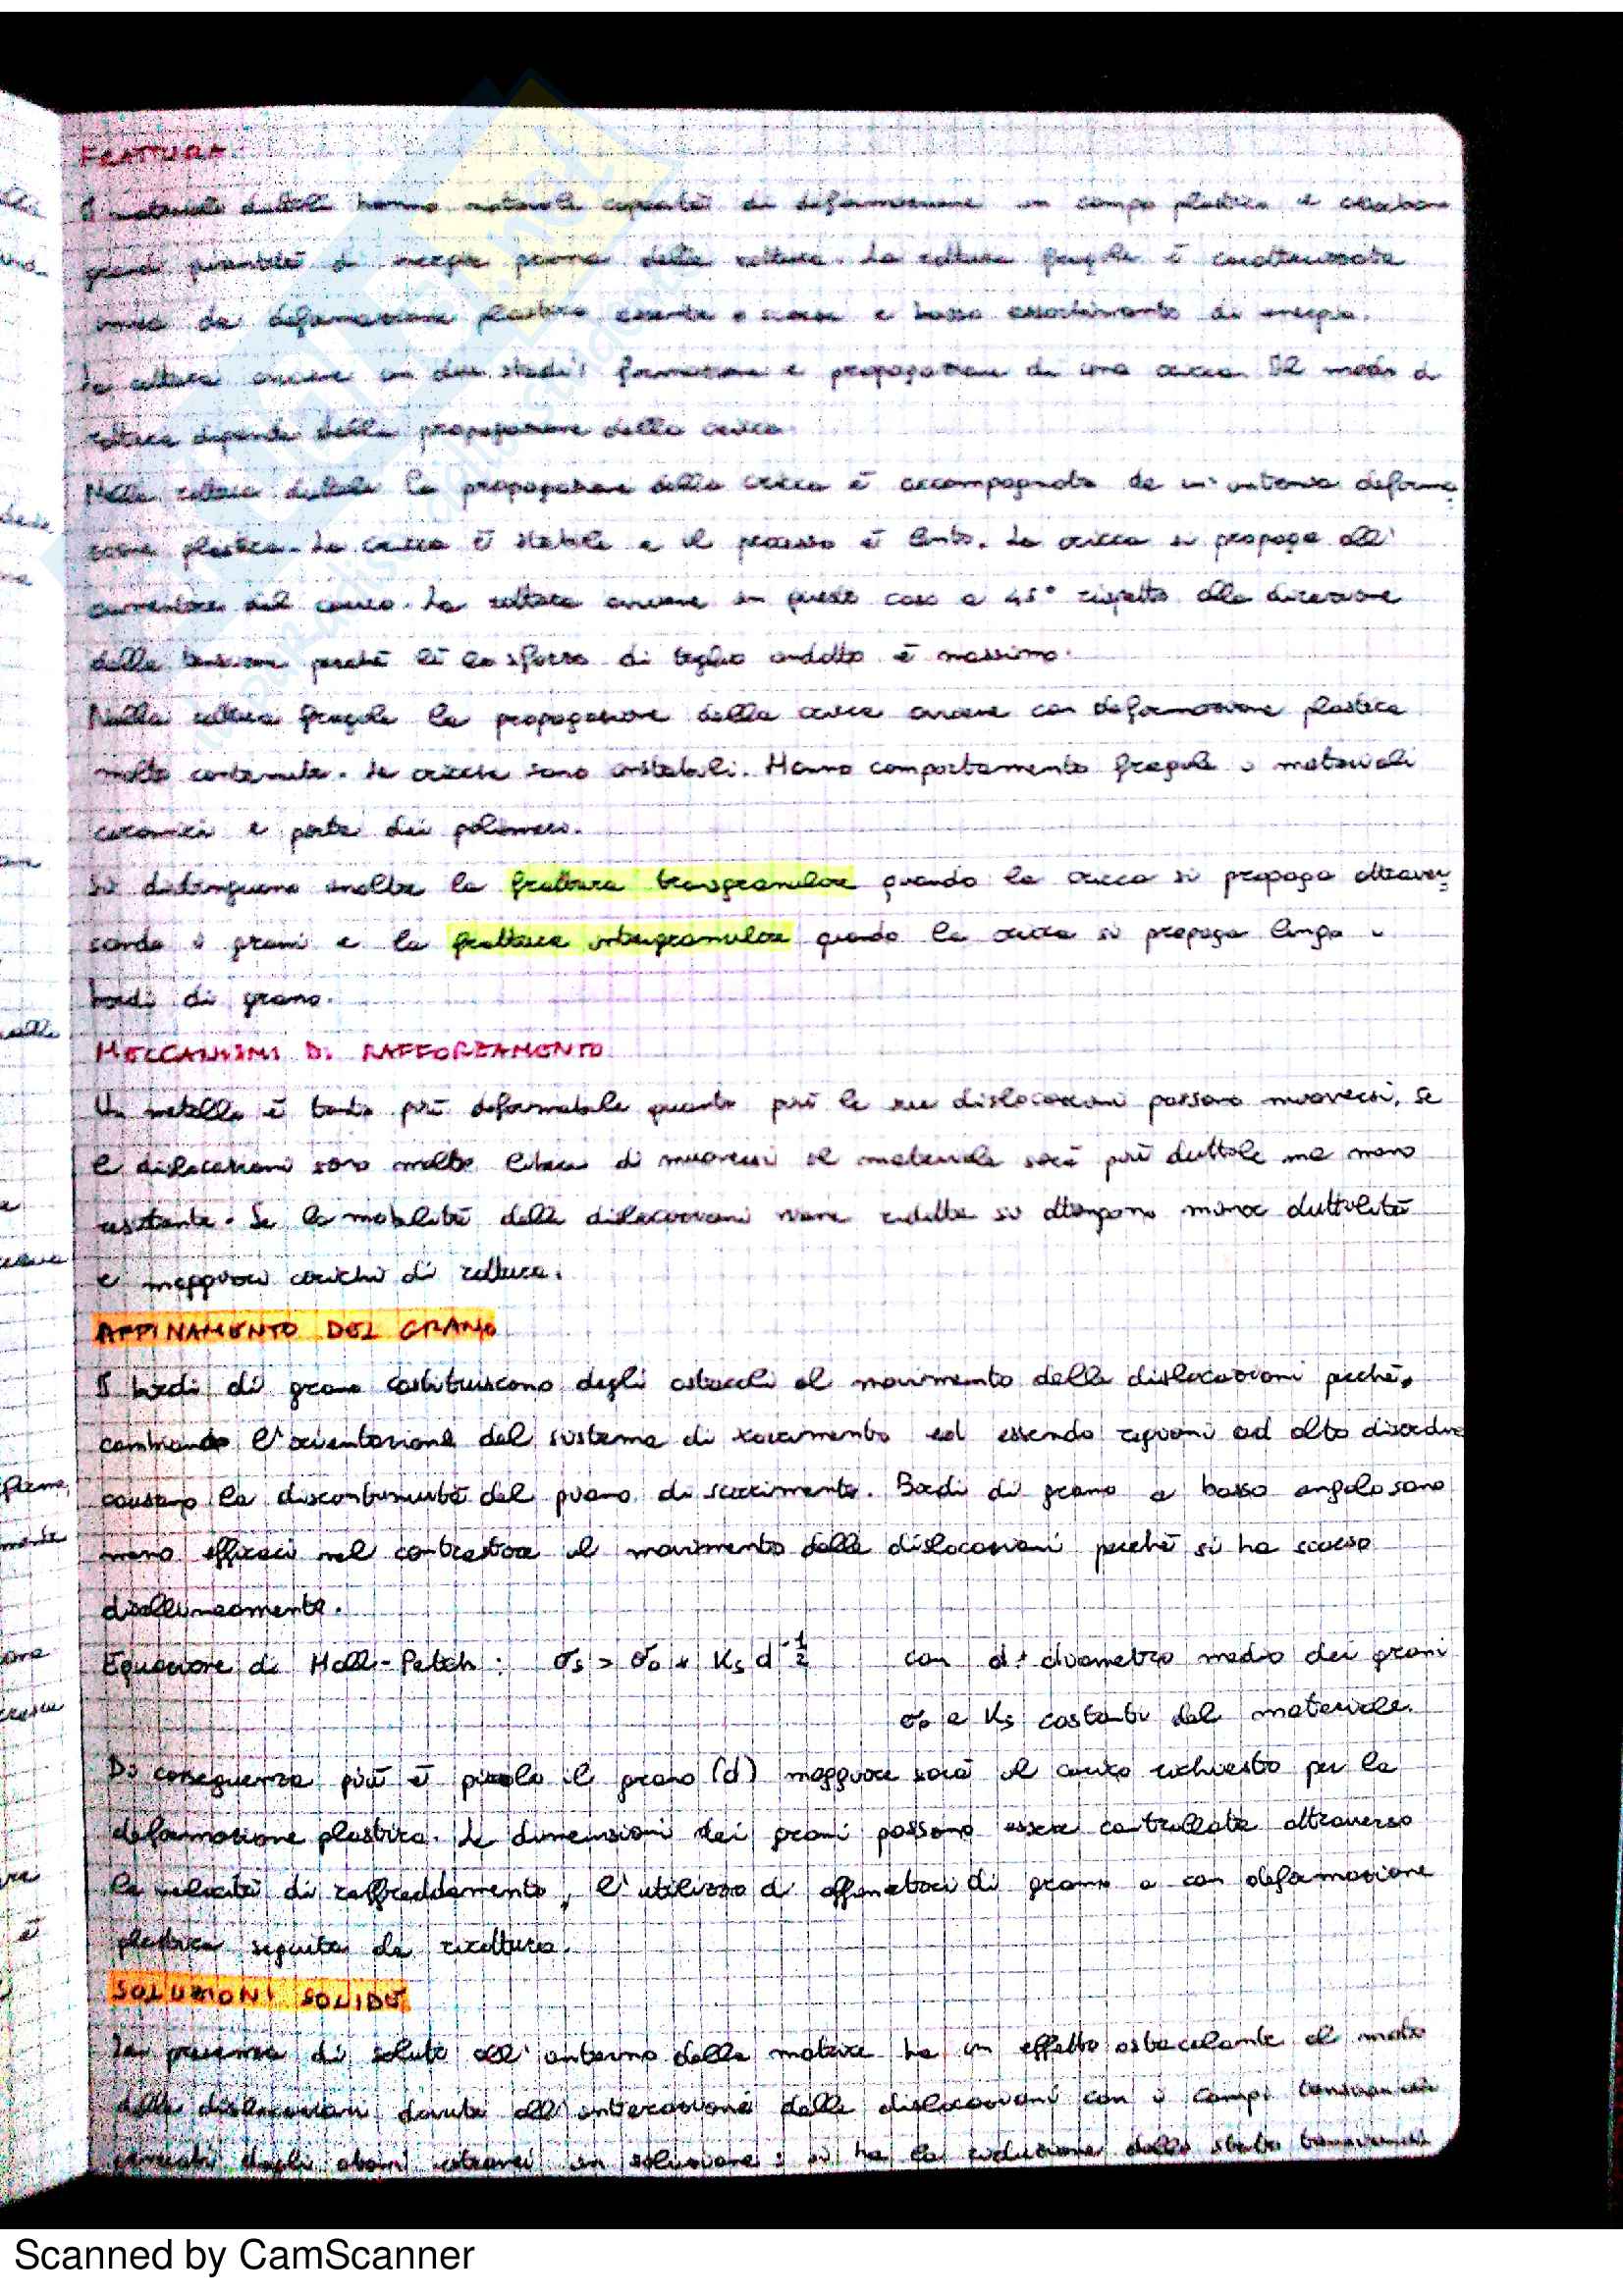 FRATTURA
I materiali duttili hanno notevole capacità di deformazione in campo plastico e assorbono
grandi quantità di energia prima della rottura. La rottura fragile è caratterizzata
invece da deformazione plastica assente o scarsa e basso assorbimento di energia.
La rottura avviene in due stadi: formazione e propagazione di una cricca. Il modo di
rottura dipende dalla propagazione della cricca.
Nella rottura duttile la propagazione della cricca è accompagnata da un'intensa deforma
zione plastica. La cricca è stabile e il processo è lento. La cricca si propaga all'
aumentare del carico. La rottura avviene in questo caso a 45° rispetto alla direzione
della tensione perché lì lo sforzo di taglio indotto è massimo.
Nella rottura fragile la propagazione della cricca avviene con deformazione plastica
molto contenuta. Le cricche sono instabili. Hanno comportamento fragile i materiali
ceramici e parte dei polimeri.
Si distinguono inoltre la frattura transgranulare quando la cricca si propaga attraver
sando i grani e la frattura intergranulare quando la cricca si propaga lungo i
bordi di grano.
MECCANISMI DI RAFFORZAMENTO
Un metallo è tanto più deformabile quanto più le sue dislocazioni possono muoversi, se
le dislocazioni sono molto libere di muoversi il materiale sarà più duttile ma meno
resistente. Se la mobilità delle dislocazioni viene ridotta si ottengono minor duttilità
e maggiori carichi di rottura.
AFFINAMENTO DEL GRANO
I bordi di grano costituiscono degli ostacoli al movimento delle dislocazioni perché,
cambiando l'orientazione del sistema di scorrimento ed essendo regioni ad alto disordine
causano la discontinuità del piano di scorrimento. Bordi di grano a basso angolo sono
meno efficaci nel contrastare il movimento delle dislocazioni perché si ha scarso
disallineamento.
Equazione di Hall-Petch: σs = σ0 + Ks d^-1/2 con d: diametro medio dei grani
σ0 e Ks costanti del materiale.
Di conseguenza più è piccolo il grano (d) maggiore sarà il carico richiesto per la
deformazione plastica. Le dimensioni dei grani possono essere controllate attraverso
la velocità di raffreddamento, l'utilizzo di affinatori di grano o con deformazione
plastica seguita da ricottura.
SOLUZIONI SOLIDE
La presenza di soluto all'interno della matrice ha un effetto ostacolante al moto
delle dislocazioni dovuto all'interazione delle dislocazioni con i campi tensionali
generati dagli atomi estranei in soluzione: si ha la riduzione dello stato tensionale
Scanned by CamScanner